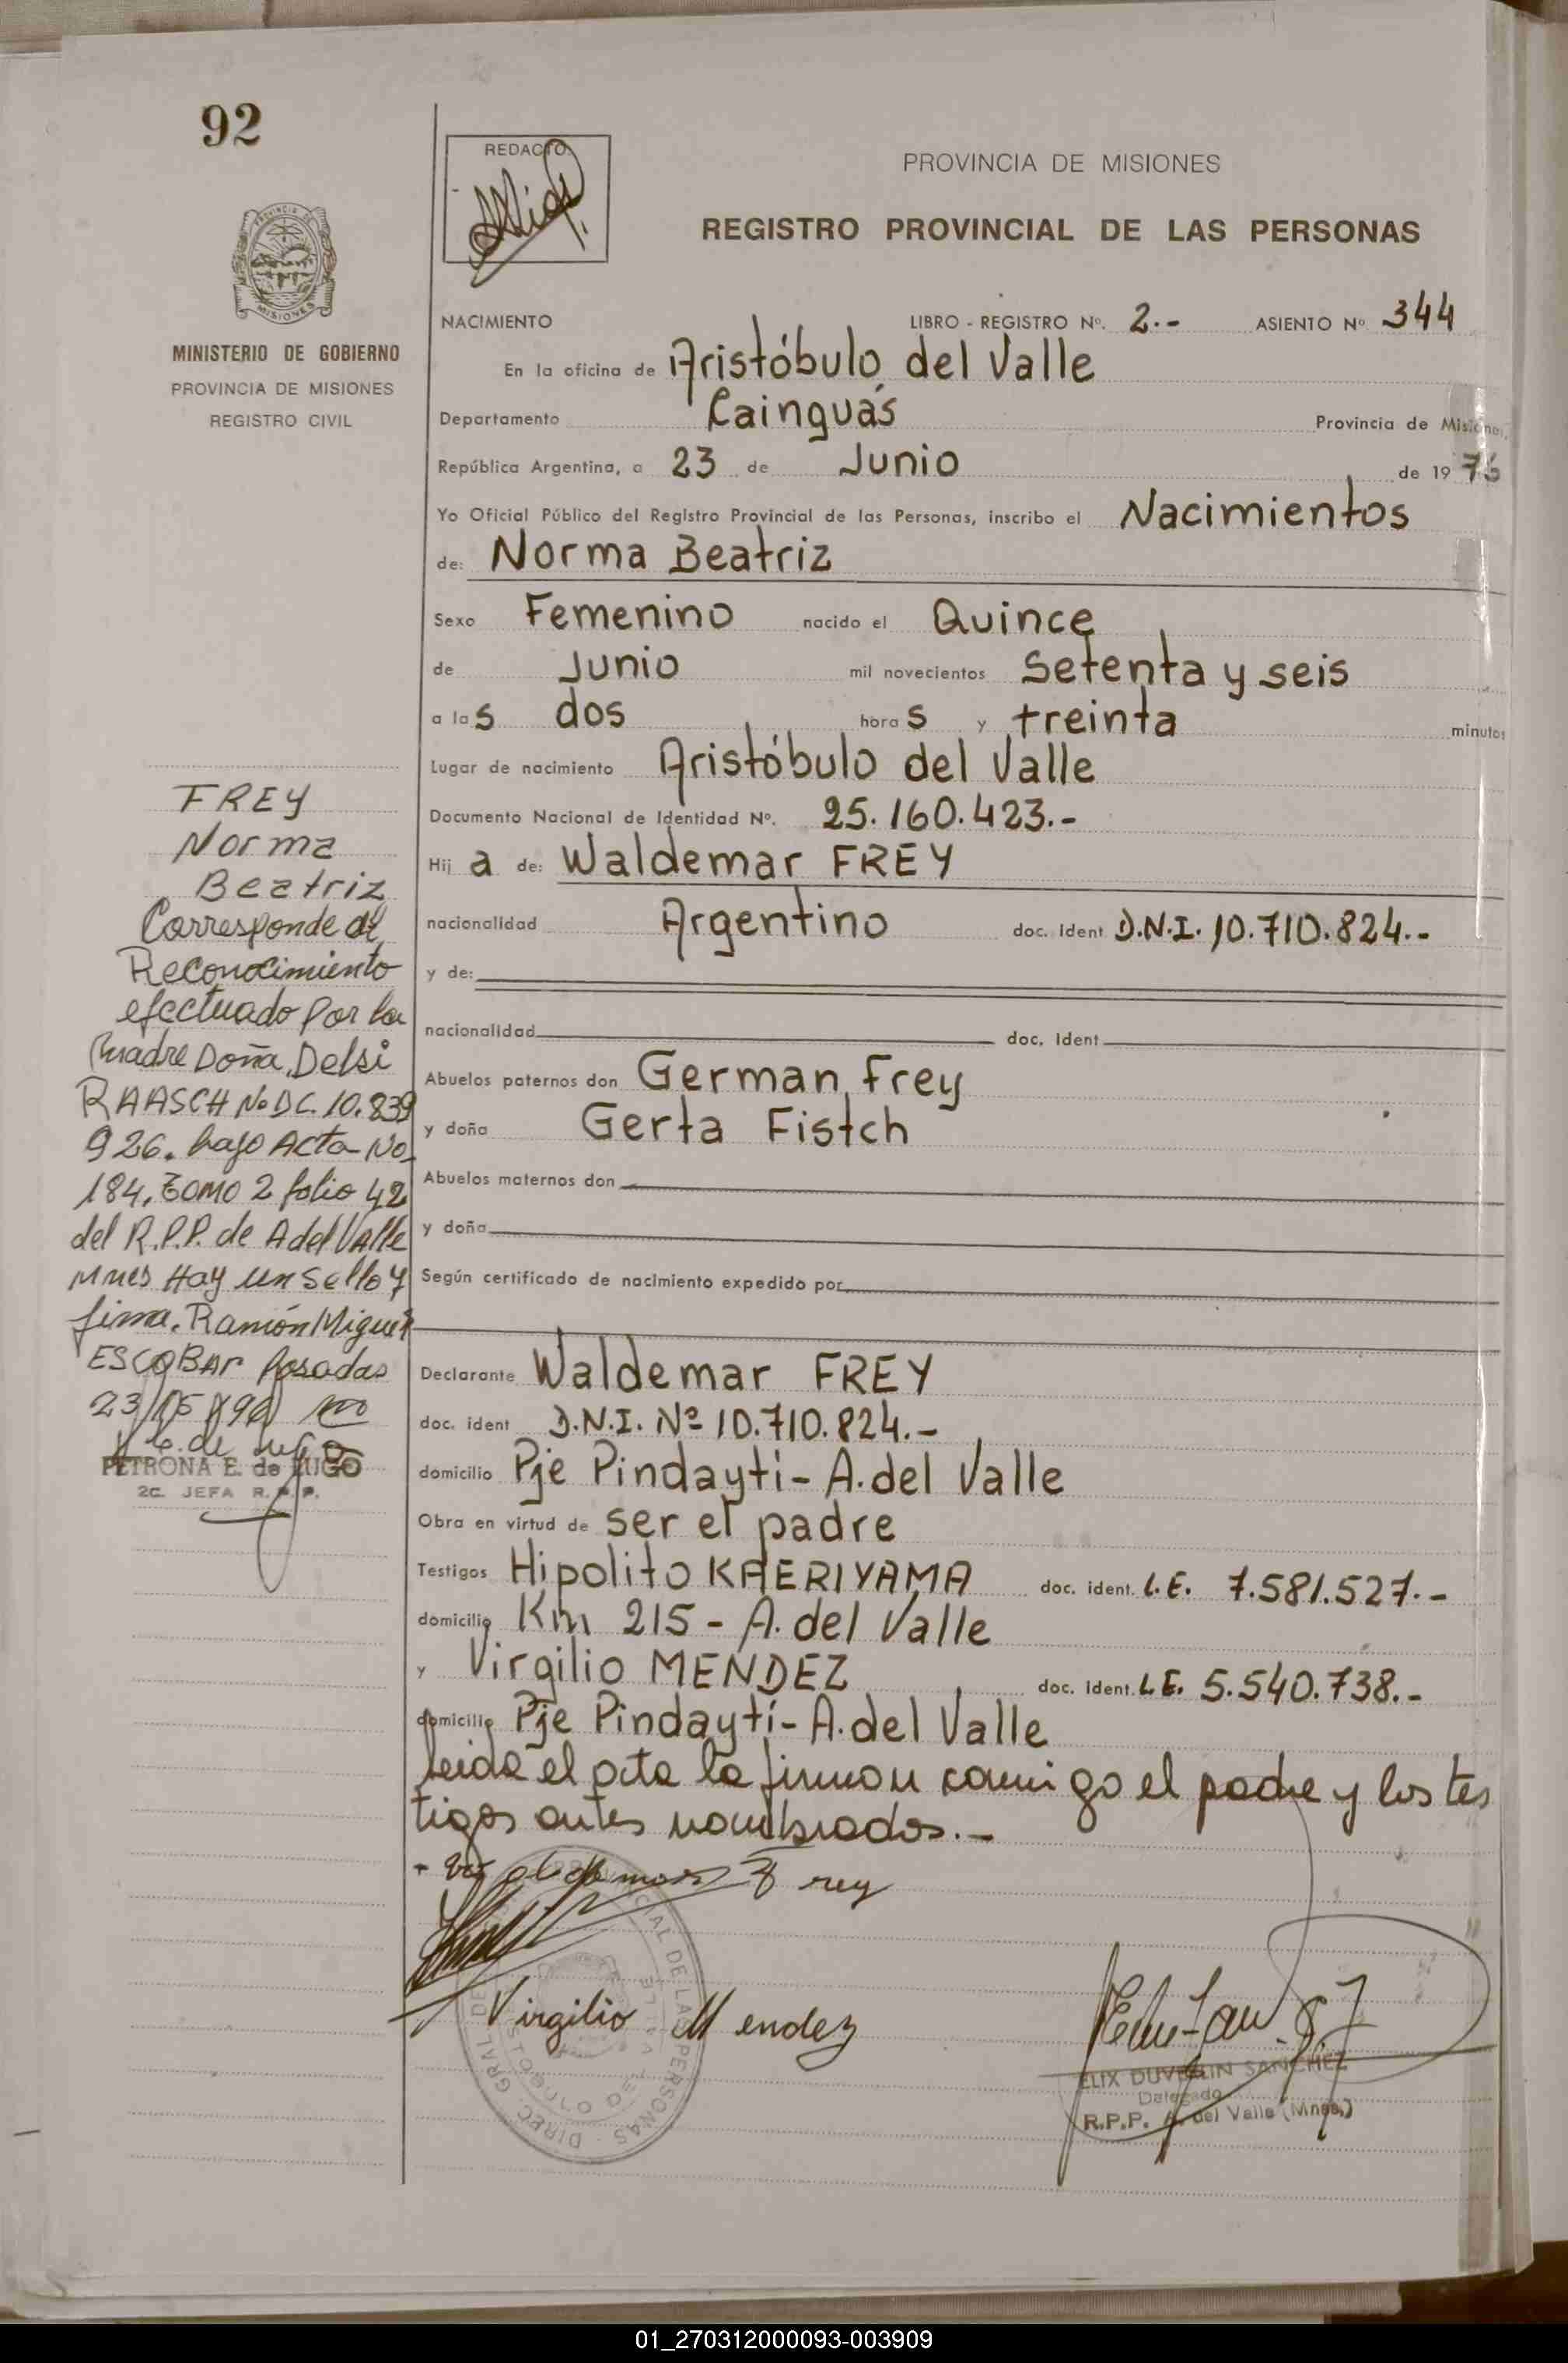 92
REDACTO:
PROVINCIA DE MISIONES
REGISTRO PROVINCIAL DE LAS PERSONAS
MISIONES
MINISTERIO DE GOBIERNO
PROVINCIA DE MISIONES
REGISTRO CIVIL
NACIMIENTO LIBRO - REGISTRO Nº. 2.- ASIENTO Nº 344
En la oficina de Aristóbulo del Valle
Departamento Cainguás Provincia de Misiones,
República Argentina, a 23 de Junio de 1976
Yo Oficial Público del Registro Provincial de las Personas, inscribo el Nacimientos
de: Norma Beatriz
Sexo Femenino nacido el Quince
de Junio mil novecientos Setenta y seis
a las dos horas y treinta minutos
Lugar de nacimiento Aristóbulo del Valle
Documento Nacional de Identidad Nº. 25.160.423.-
Hija de: Waldemar FREY
nacionalidad Argentino doc. Ident D.N.I. 10.710.824.-
y de:
nacionalidad doc. Ident
Abuelos paternos don German Frey
y doña Gerta Fistch
Abuelos maternos don
y doña
Según certificado de nacimiento expedido por
Declarante Waldemar FREY
doc. ident D.N.I. Nº 10.710.824.-
domicilio Pje Pindaytí - A. del Valle
Obra en virtud de ser el padre
Testigos Hipolito KAERIYAMA doc. ident. L.E. 7.581.527.-
domicilio Km 215 - A. del Valle
y Virgilio MENDEZ doc. ident. L.E. 5.540.738.-
domicilio Pje Pindaytí - A. del Valle
leida el acta la firman conmigo el padre y los tes
tigos antes nombrados.-
Frey
Virgilio Mendez
ELIX DUVELIN SANCHEZ
Delegado
R.P.P. A. del Valle (Mnes.)
FREY
Norma
Beatriz
Corresponde al
Reconocimiento
efectuado por la
madre Doña, Delsi
RAASCH No DC. 10.839
926. bajo Acta No
184, Tomo 2 folio 42
del R.P.P. de A del Valle
Mnes Hay un sello y
firma. Ramón Miguel
ESCOBAR Posadas
PETRONA E. de LUGO
2C. JEFA R.P.P.
01_270312000093-003909